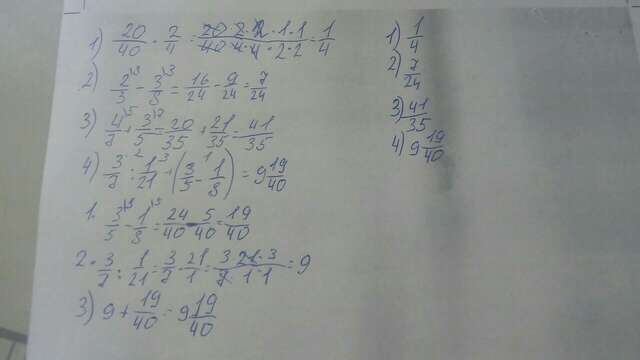 1) 20/40 · 2/4 = 20 · 2 · 1 · 1 / 40 · 4 · 2 · 2 = 1/4
2) 2/3 - 3/8 = 16/24 - 9/24 = 7/24
3) 4/7 + 3/5 = 20/35 + 21/35 = 41/35
4) 3/7 : 1/21 + (3/5 - 1/8) = 9 19/40
1. 3/5 - 1/8 = 24/40 - 5/40 = 19/40
2. 3/7 : 1/21 = 3/7 · 21/1 = 3 · 21 · 3 / 7 · 1 · 1 = 9
3) 9 + 19/40 = 9 19/40
1) 1/4
2) 7/24
3) 41/35
4) 9 19/40